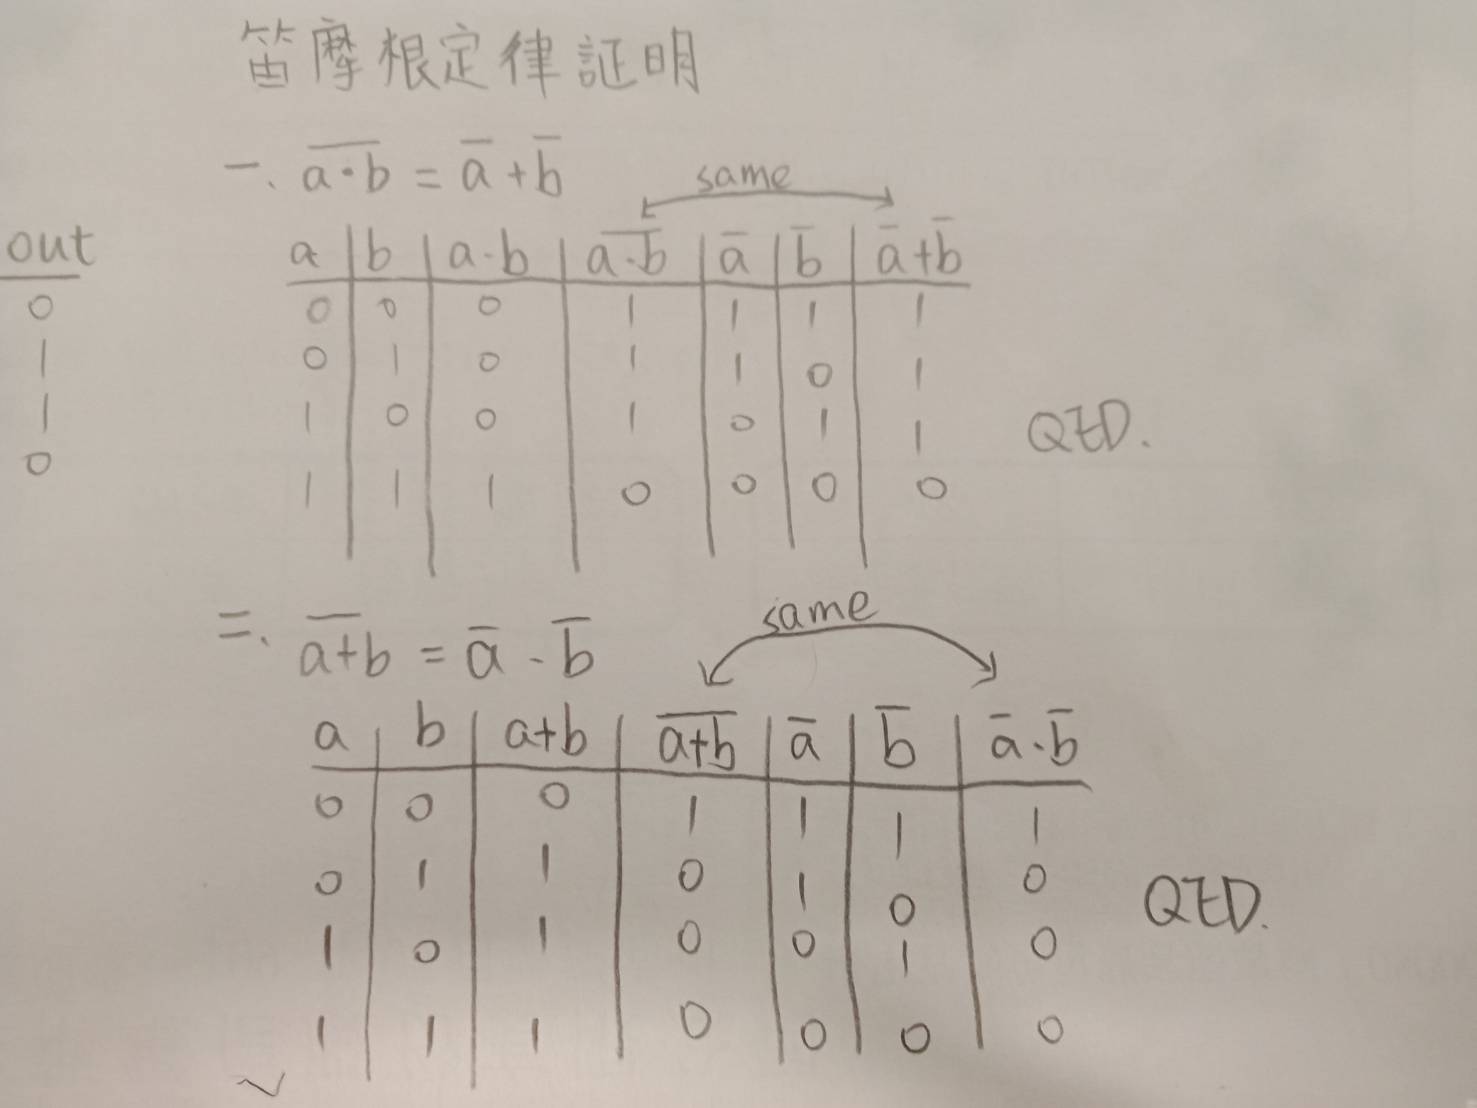 笛摩根定律証明
一、 a̅·̅b̅ = a̅ + b̅
same
out
0
1
1
0
a | b | a·b | a̅·̅b̅ | a̅ | b̅ | a̅+b̅
0 0 0 1 1 1 1
0 1 0 1 1 0 1
1 0 0 1 0 1 1
1 1 1 0 0 0 0
QED.
二、 a̅+̅b = a̅ · b̅
same
a | b | a+b | a̅+̅b̅ | a̅ | b̅ | a̅·b̅
0 0 0 1 1 1 1
0 1 1 0 1 0 0
1 0 1 0 0 1 0
1 1 1 0 0 0 0
QED.